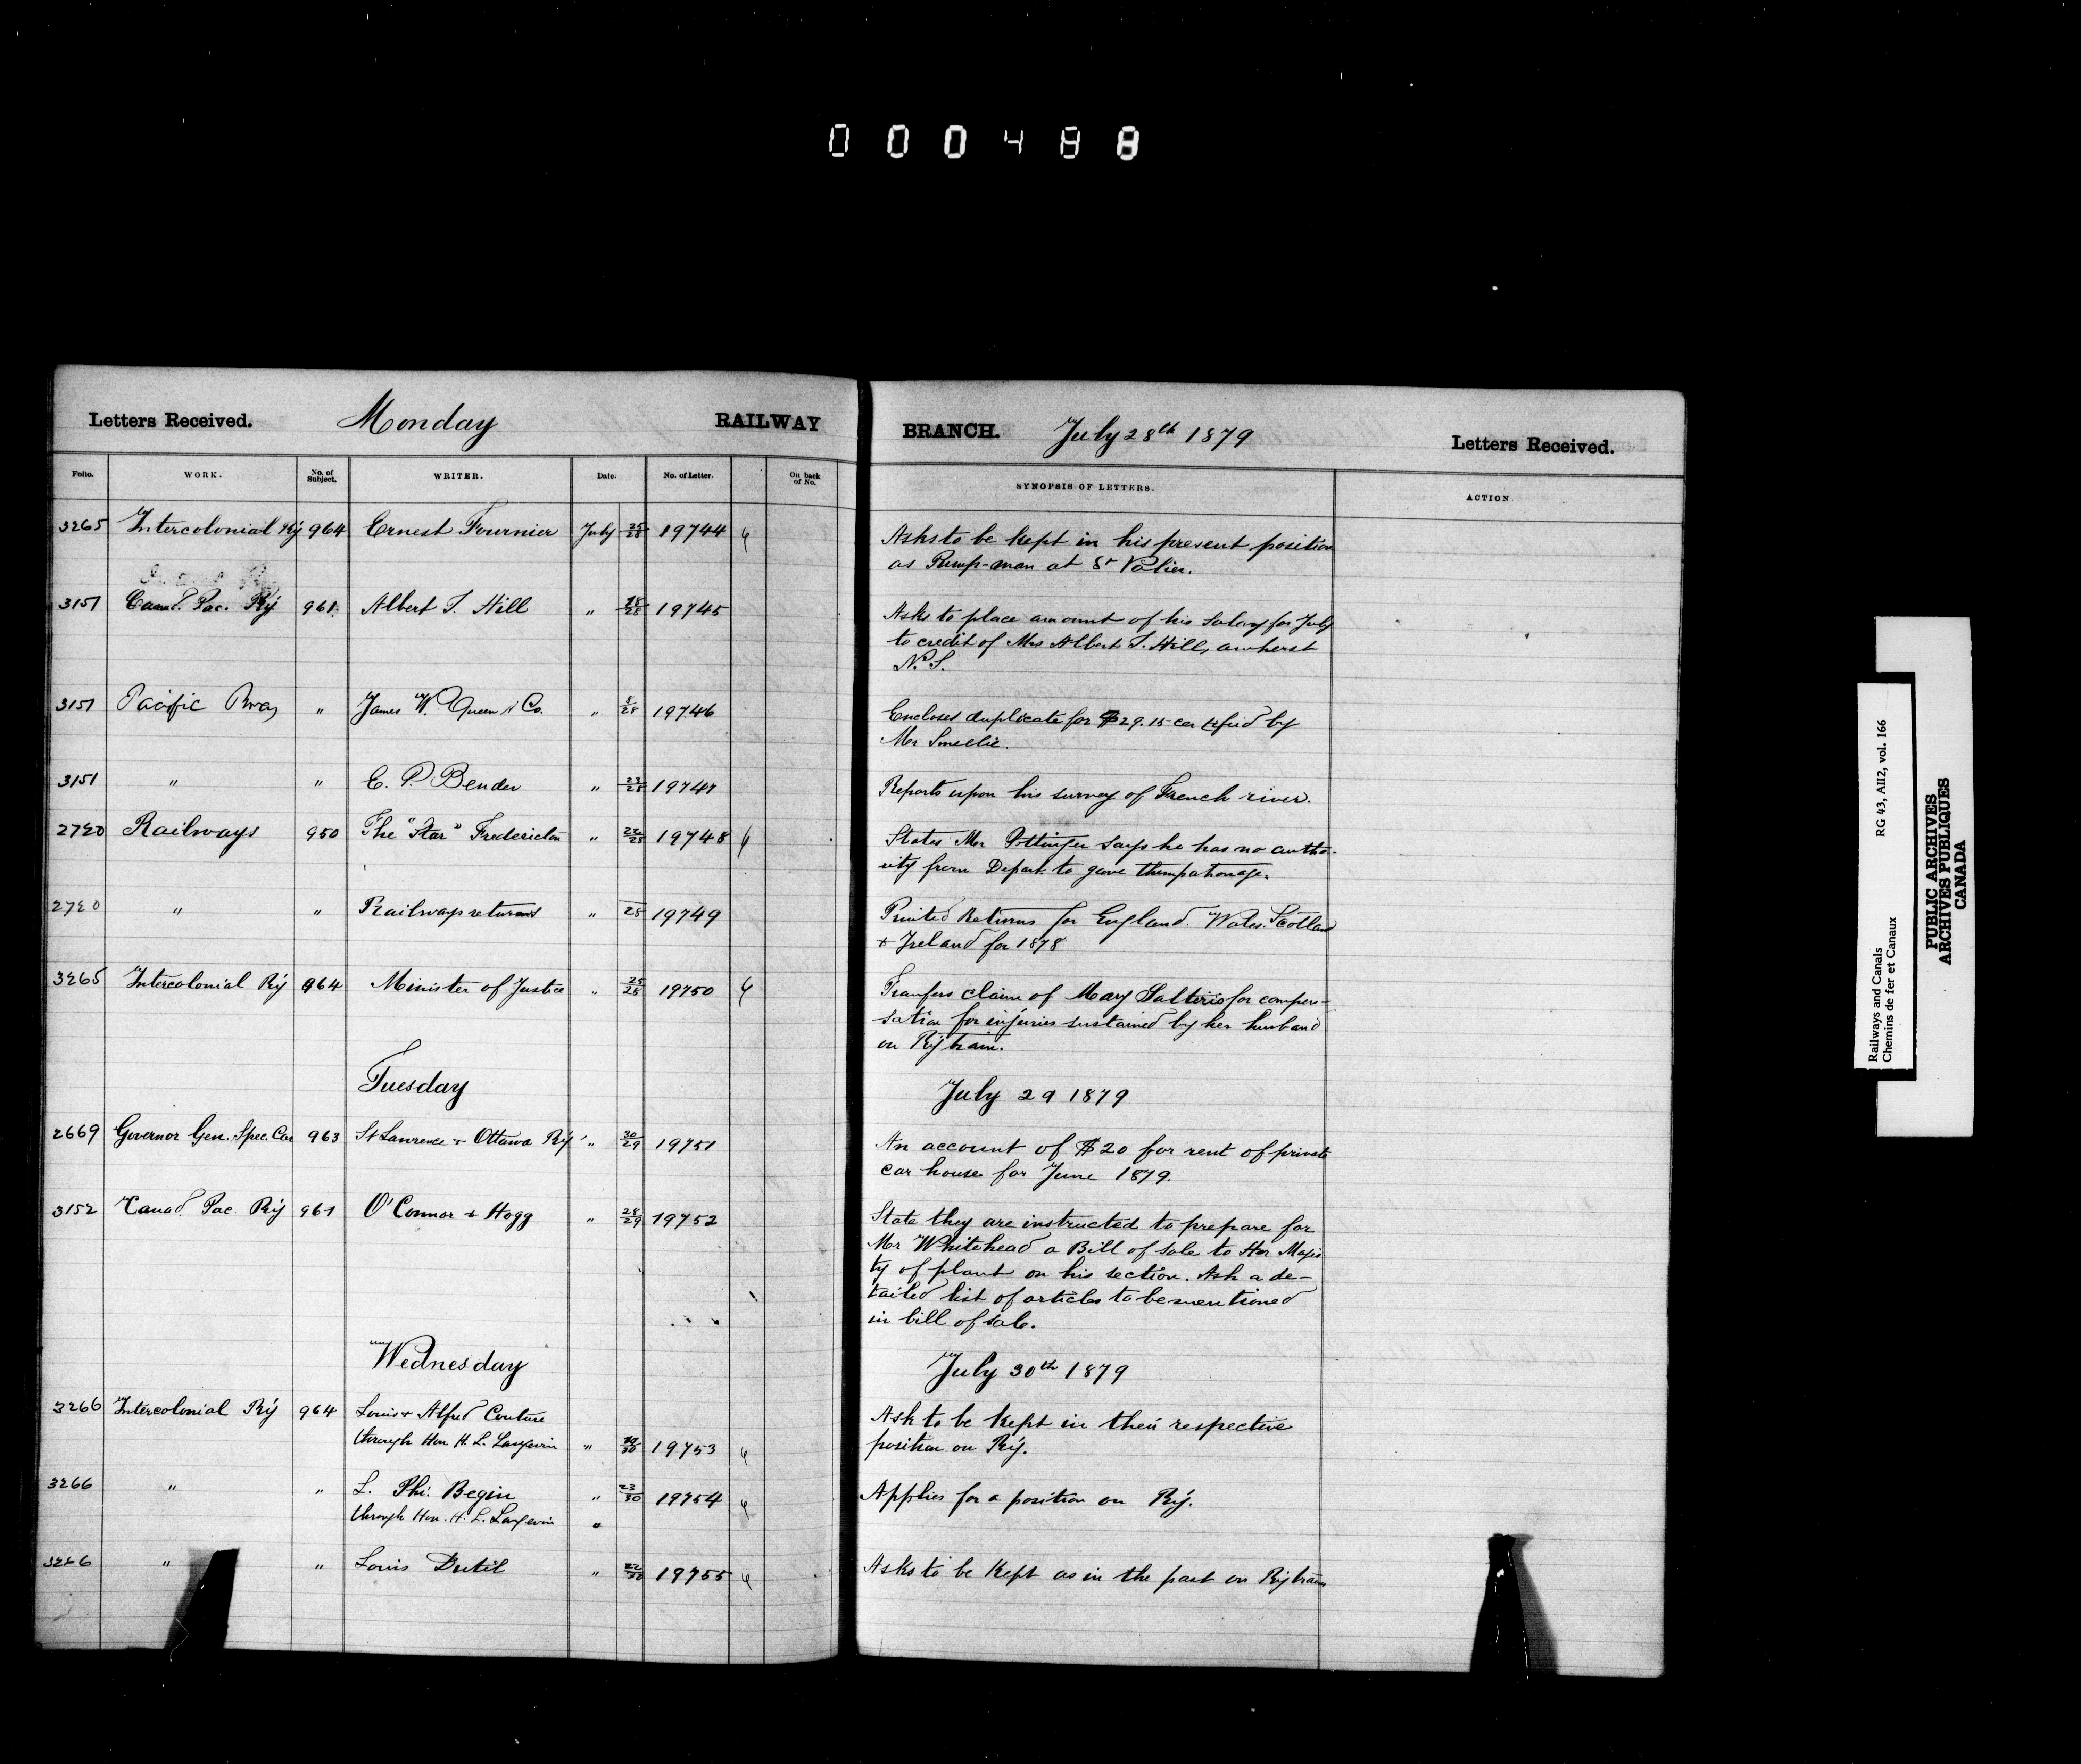 000488
Letters Received. Monday RAILWAY BRANCH. July 28th 1879 Letters Received.
Folio. WORK. No. of Subject. WRITER. Date. No. of Letter. On back of No. SYNOPSIS OF LETTERS. ACTION.
3265 Intercolonial Ry 964 Ernest Fournier July 25/28 19744 Asks to be kept in his present position
as Pump-man at St Valier.
3151 Canad. Pac. Ry 961 Albert S. Hill " 15/28 19745 Asks to place amount of his Salary for July
to credit of Mrs Albert S. Hill, amherst
N.S.
3151 Pacific Rway " James W. Queen & Co. " 8/28 19746 Encloses duplicate for $29.15 certified by
Mr Smellie.
3151 " " C. P. Bender " 23/28 19747 Reports upon his survey of French river.
2720 Railways 950 The "Star" Fredericton " 22/28 19748 States Mr Pottinger says he has no autho-
rity from Depart. to gave them patronage.
2720 " " Railways returns " 28 19749 Printed Returns for England. Wales. Scotland
+ Ireland for 1878
3265 Intercolonial Ry 964 Minister of Justice " 25/28 19750 Transfers claim of Mary for compen-
sation for injuries sustained by her husband
on Ry train.
Tuesday July 29 1879
2669 Governor Gen. Spec. Car 963 St Lawrence + Ottawa Ry " 30/29 19751 An account of $20 for rent of private
car house for June 1879.
3152 Canad. Pac. Ry 961 O'Connor & Hogg " 28/29 19752 State they are instructed to prepare for
Mr Whitehead a Bill of sale to Her Majes
ty of plant on his section. Ask a de-
tailed list of articles to be mentioned
in bill of sale.
Wednesday July 30th 1879
3266 Intercolonial Ry 964 Louis + Alfred Couture Ask to be kept in their respective
through Hon. H. L. Langevin " 19753 position on Ry.
3266 " " L. Phi. Begin " 23/30 19754 Applies for a position on Ry.
through Hon. H. L. Langevin "
3266 " " Louis Dutil " 22/30 19755 Asks to be kept as in the past on Ry train
Railways and Canals RG 43, AII2, vol. 166
Chemins de fer et Canaux
PUBLIC ARCHIVES
ARCHIVES PUBLIQUES
CANADA